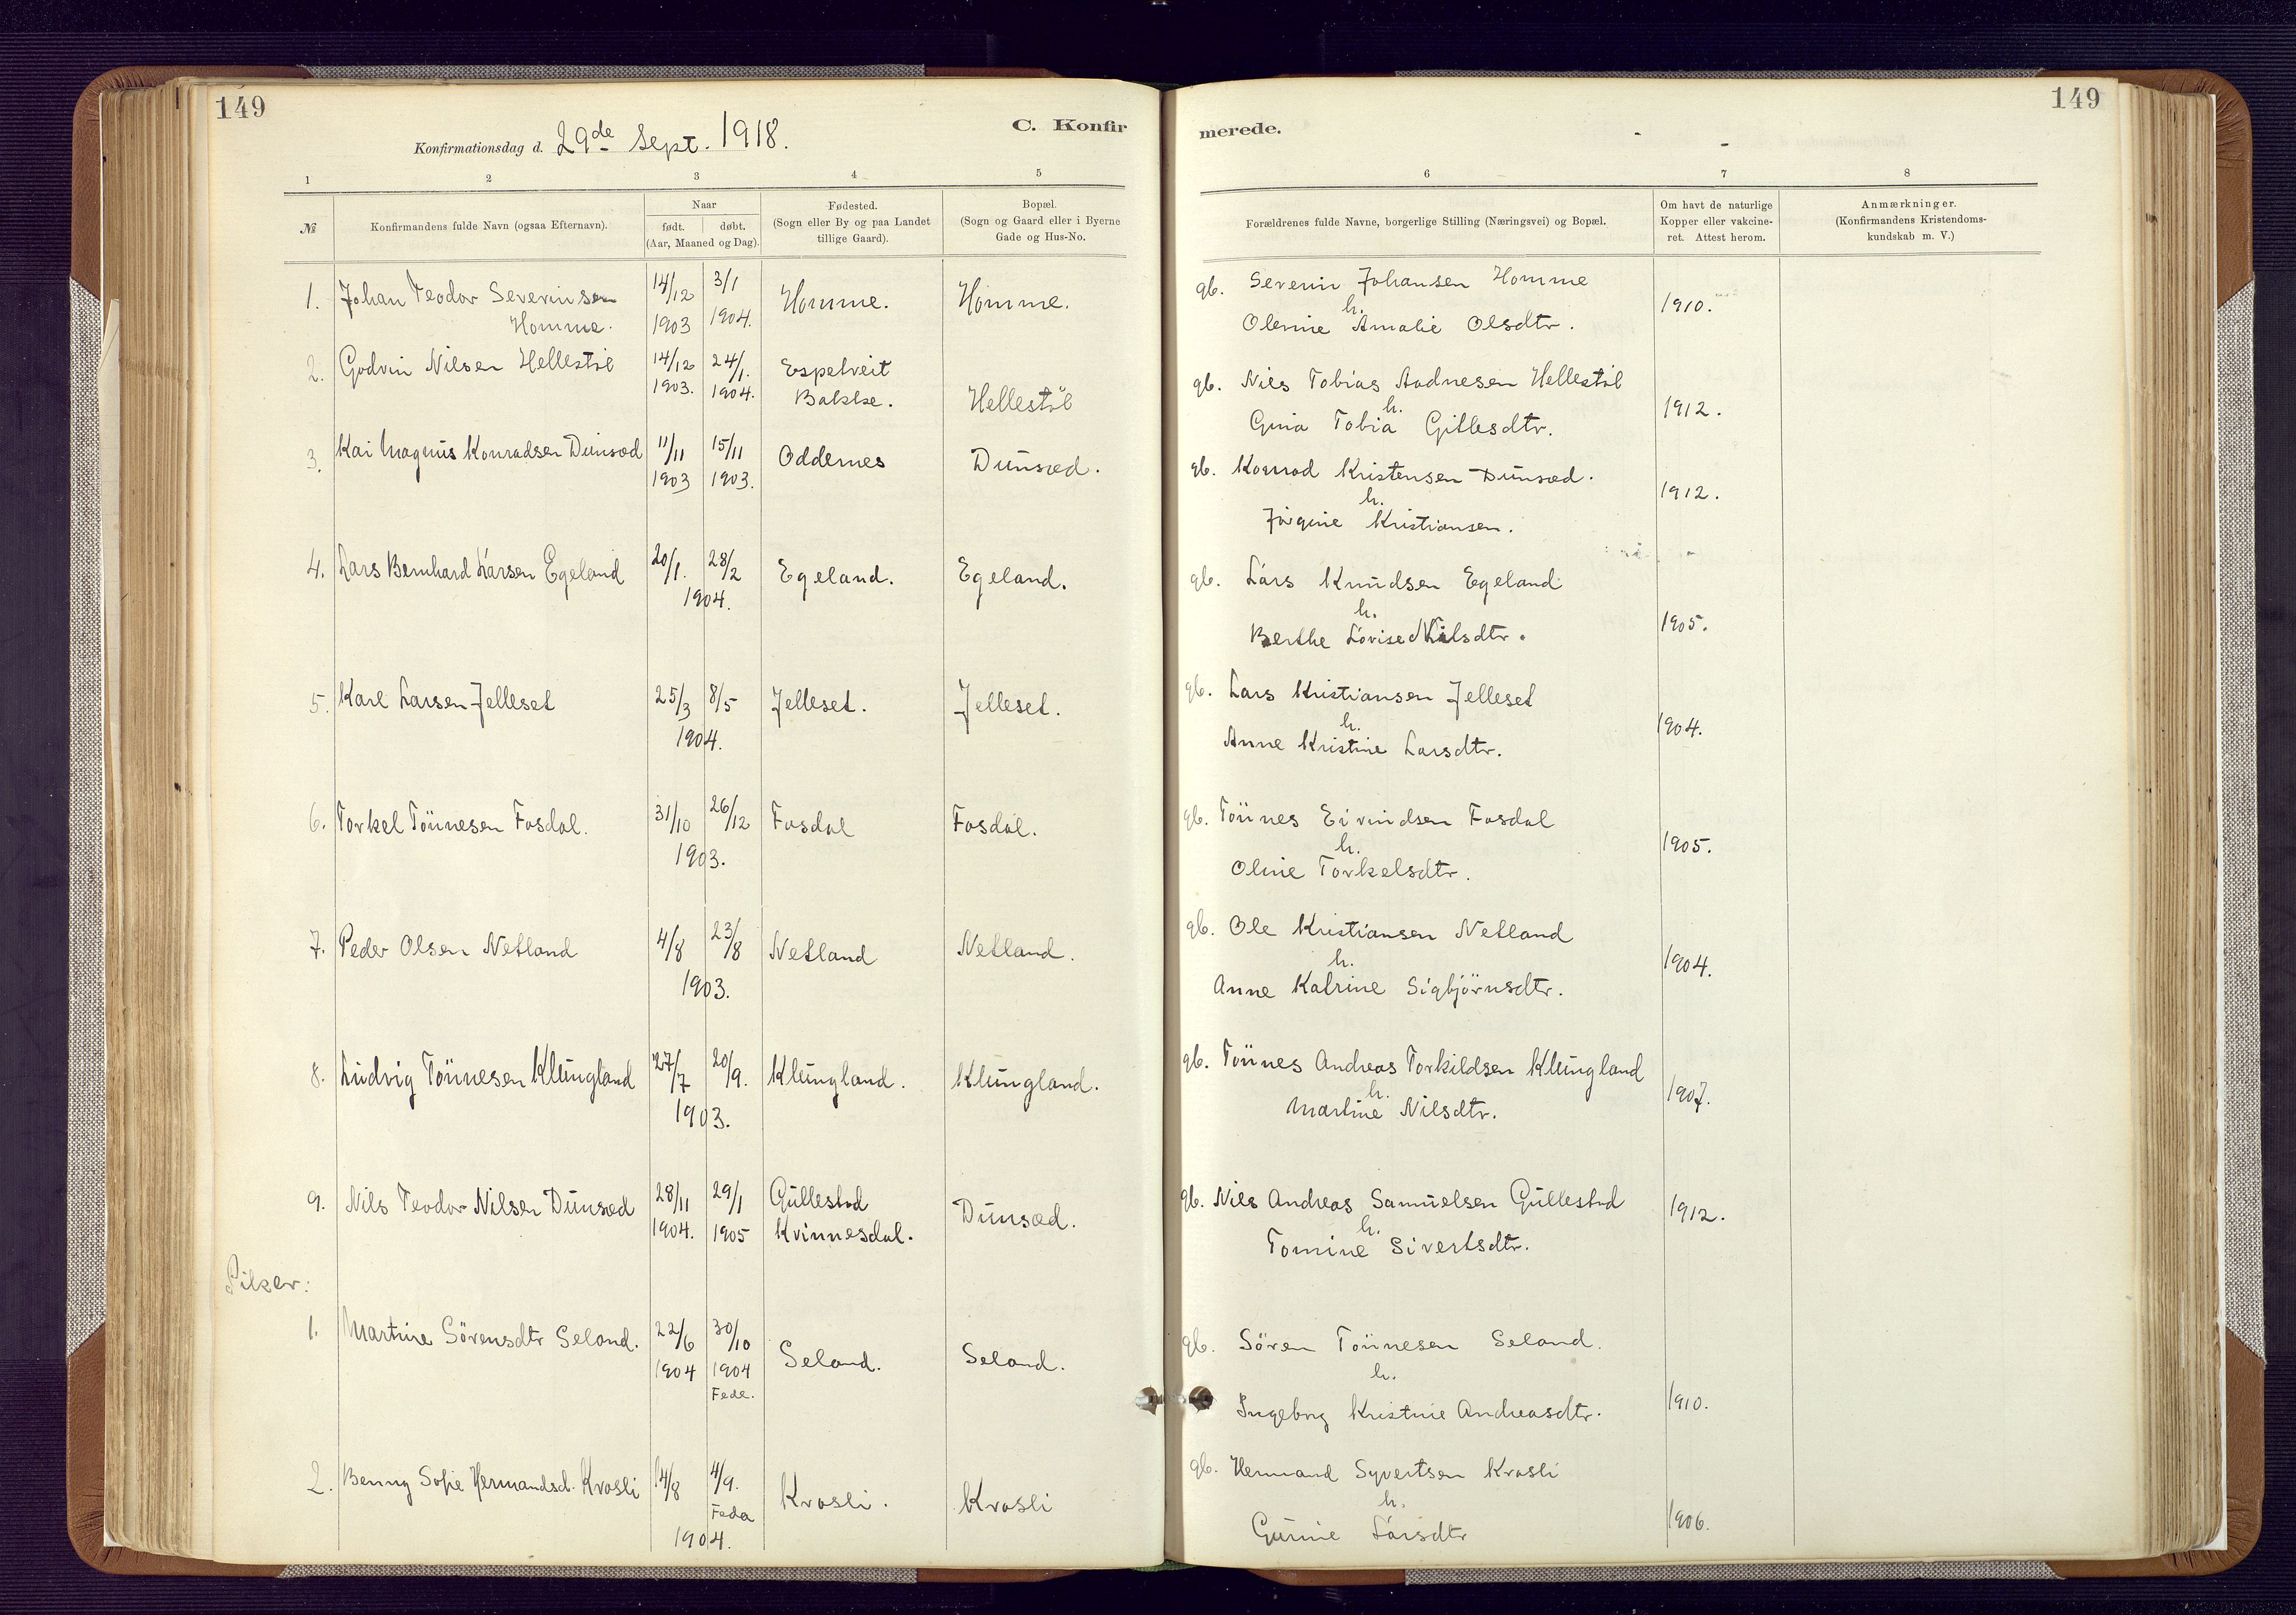 149
149
Konfirmationsdag d. 29de Sept. 1918.
C. Konfir
merede.
1 2 3 4 5
6 7 8
№
Konfirmandens fulde Navn (ogsaa Efternavn).
Naar
født. døbt.
(Aar, Maaned og Dag).
Fødested.
(Sogn eller By og paa Landet
tillige Gaard).
Bopæl.
(Sogn og Gaard eller i Byerne
Gade og Hus-No.
Forældrenes fulde Navne, borgerlige Stilling (Næringsvei) og Bopæl.
Om havt de naturlige
Kopper eller vakcine-
ret. Attest herom.
Anmærkninger.
(Konfirmandens Kristendoms-
kundskab m. V.)
1. Johan Teodor Severinsen
Homme.
14/12 1903
3/1 1904.
Homme.
Homme.
gb. Severin Johansen Homme
h.
Olenie Amalie Olsdtr.
1910.
2. Godvin Nilsen Hellestöl
14/12 1903.
24/1. 1904.
Espetveit
Bakke.
Hellestöl
gb. Nils Tobias Aadnesen Hellestöl
h.
Gina Tobia Gitlesdtr.
1912.
3. Kai Magnus Konradsen Dunsæd
11/11 1903
15/11 1903.
Oddernes
Dunsæd.
gb. Konrad Kristensen Dunsæd.
h.
Jörgine Kristiansen.
1912.
4. Lars Bernhard Larsen Egeland
20/1. 28/2
1904.
Egeland.
Egeland.
gb. Lars Knudsen Egeland
h.
Berthe Lovise Nilsdtr.
1905.
5. Karl Larsen Jelleset
25/3 8/5
1904.
Jelleset.
Jelleset.
gb. Lars Kristiansen Jelleset
h.
Anne Kristine Larsdtr.
1904.
6. Torkel Tönnesen Fosdal.
31/10 26/12
1903.
Fosdal
Fosdal.
gb. Tönnes Eivindsen Fosdal
h.
Oline Torkelsdtr.
1905.
7. Peder Olsen Netland
4/8 23/8
1903.
Netland
Netland.
gb. Ole Kristiansen Netland
h.
Anne Katrine Sigbjörnsdtr.
1904.
8. Ludvig Tönnesen Klungland
27/7 20/9.
1903.
Klungland.
Klungland.
gb. Tönnes Andreas Torkildsen Klungland
h.
Martine Nilsdtr.
1907.
9. Nils Teodor Nilsen Dunsæd
28/11 1904.
29/1 1905
Gullestad
Kvinnesdal.
Dunsæd.
gb. Nils Andreas Samuelsen Gullestad
h.
Tomine Sivertsdtr.
1912.
Piker:
1. Martine Sörensdtr Seland.
22/6 1904
30/10 1904
Fede.
Seland.
Seland.
gb. Sören Tönnesen Seland.
h.
Ingeborg Kristine Andreasdtr.
1910.
2. Benny Sofie Hermandsd. Krosli
14/8 4/9.
Feda
1904.
Krosli.
Krosli
gb. Hermand Syvertsen Krosli
h.
Gunnie Larsdtr
1906.